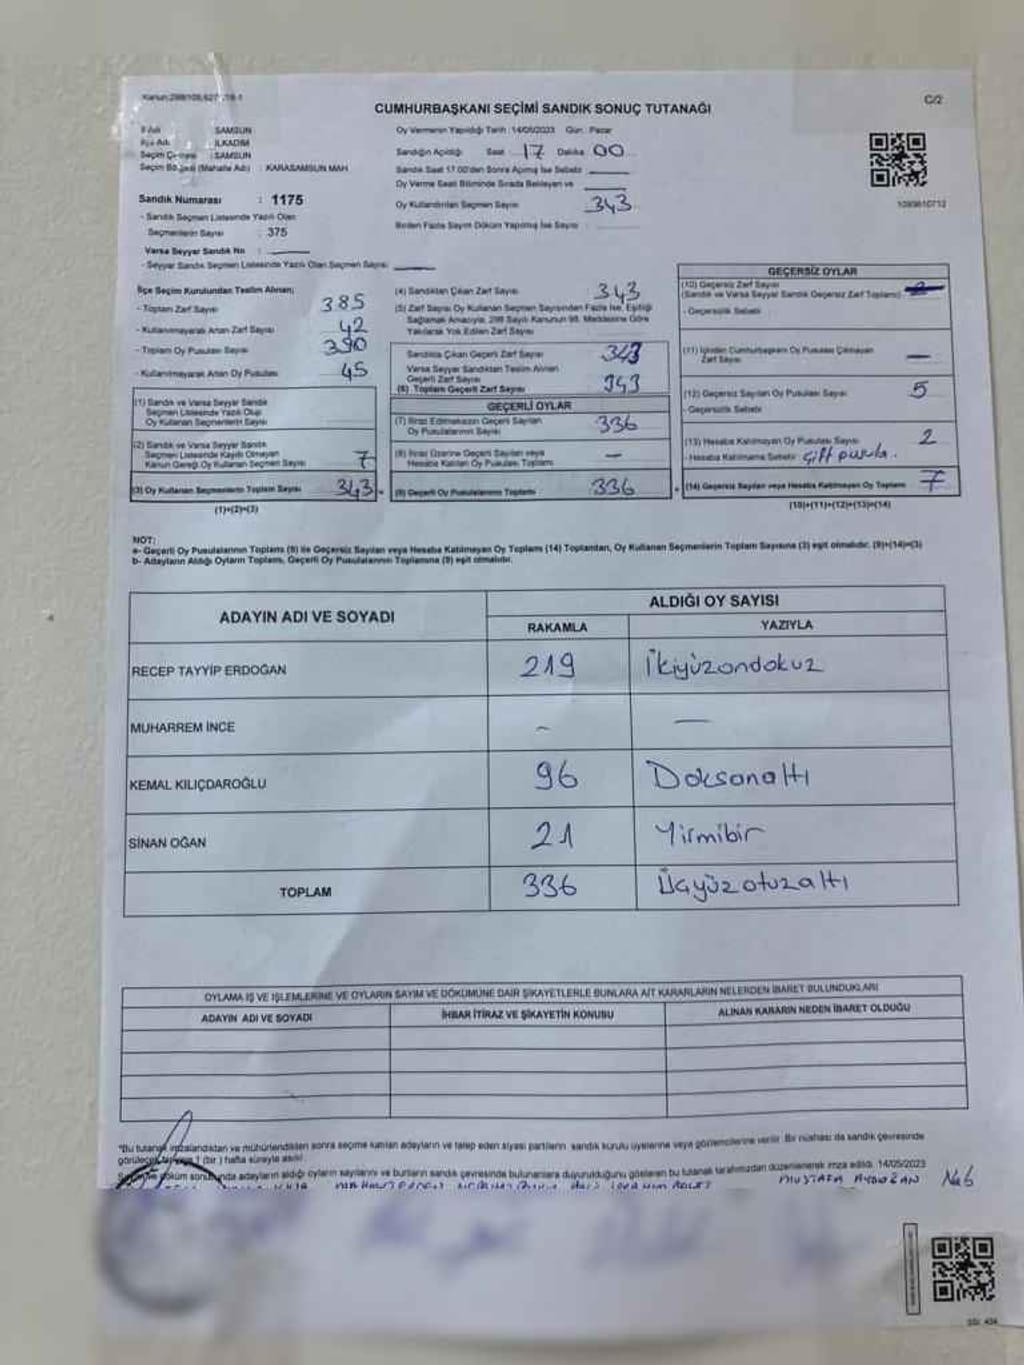 C/2
CUMHURBAŞKANI SEÇİMİ SANDIK SONUÇ TUTANAĞI
İl Adı : SAMSUN
İlçe Adı : İLKADIM
Seçim Çevresi : SAMSUN
Seçim Bölgesi (Mahalle Adı) : KARASAMSUN MAH
Sandık Numarası : 1175
- Sandık Seçmen Listesinde Yazılı Olan
Seçmenlerin Sayısı : 375
Varsa Seyyar Sandık No :
- Seyyar Sandık Seçmen Listesinde Yazılı Olan Seçmen Sayısı
Oy Vermenin Yapıldığı Tarih : 14/05/2023 Gün : Pazar
Sandığın Açıldığı Saat 17 Dakika 00
Sandık Saat 17.00'den Sonra Açılmış İse Sebebi
Oy Verme Saati Bitiminde Sırada Bekleyen ve
Oy Kullandırılan Seçmen Sayısı 343
Birden Fazla Sayım Döküm Yapılmış İse Sayısı :
1093610712
İlçe Seçim Kurulundan Teslim Alınan;
- Toplam Zarf Sayısı 385
- Kullanılmayarak Artan Zarf Sayısı 42
- Toplam Oy Pusulası Sayısı 390
- Kullanılmayarak Artan Oy Pusulası 45
(1) Sandık ve Varsa Seyyar Sandık
Seçmen Listesinde Yazılı Olup
Oy Kullanan Seçmenlerin Sayısı
(2) Sandık ve Varsa Seyyar Sandık
Seçmen Listesinde Kayıtlı Olmayan
Kanun Gereği Oy Kullanan Seçmen Sayısı 7
(3) Oy Kullanan Seçmenlerin Toplam Sayısı 343 =
(1)+(2)=(3)
(4) Sandıktan Çıkan Zarf Sayısı 343
(5) Zarf Sayısı Oy Kullanan Seçmen Sayısından Fazla İse, Eşitliği
Sağlamak Amacıyla, 298 Sayılı Kanunun 98. Maddesine Göre
Yakılarak Yok Edilen Zarf Sayısı
Sandıkta Çıkan Geçerli Zarf Sayısı 343
Varsa Seyyar Sandıktan Teslim Alınan
Geçerli Zarf Sayısı
(6) Toplam Geçerli Zarf Sayısı 343
GEÇERLİ OYLAR
(7) İtiraz Edilmeksizin Geçerli Sayılan
Oy Pusulalarının Sayısı 336
(8) İtiraz Üzerine Geçerli Sayılan veya
Hesaba Katılan Oy Pusulası Toplamı —
(9) Geçerli Oy Pusulalarının Toplamı 336 +
GEÇERSİZ OYLAR
(10) Geçersiz Zarf Sayısı
(Sandık ve Varsa Seyyar Sandık Geçersiz Zarf Toplamı)
- Geçersizlik Sebebi
(11) İçinden Cumhurbaşkanı Oy Pusulası Çıkmayan
Zarf Sayısı —
(12) Geçersiz Sayılan Oy Pusulası Sayısı 5
- Geçersizlik Sebebi
(13) Hesaba Katılmayan Oy Pusulası Sayısı 2
- Hesaba Katılmama Sebebi Çift pusula.
(14) Geçersiz Sayılan veya Hesaba Katılmayan Oy Toplamı 7
(10)+(11)+(12)+(13)=(14)
NOT:
a- Geçerli Oy Pusulalarının Toplamı (9) ile Geçersiz Sayılan veya Hesaba Katılmayan Oy Toplamı (14) Toplamları, Oy Kullanan Seçmenlerin Toplam Sayısına (3) eşit olmalıdır. (9)+(14)=(3)
b- Adayların Aldığı Oyların Toplamı, Geçerli Oy Pusulalarının Toplamına (9) eşit olmalıdır.
ADAYIN ADI VE SOYADI
ALDIĞI OY SAYISI
RAKAMLA YAZIYLA
RECEP TAYYİP ERDOĞAN 219 İkiyüzondokuz
MUHARREM İNCE - —
KEMAL KILIÇDAROĞLU 96 Doksanaltı
SİNAN OĞAN 21 Yirmibir
TOPLAM 336 Üçyüzotuzaltı
OYLAMA İŞ VE İŞLEMLERİNE VE OYLARIN SAYIM VE DÖKÜMÜNE DAİR ŞİKAYETLERLE BUNLARA AİT KARARLARIN NELERDEN İBARET BULUNDUKLARI
ADAYIN ADI VE SOYADI İHBAR İTİRAZ VE ŞİKAYETİN KONUSU ALINAN KARARIN NEDEN İBARET OLDUĞU
*Bu tutanak imzalandıktan ve mühürlendikten sonra seçime katılan adayların ve talep eden siyasi partilerin sandık kurulu üyelerine veya gözlemcilerine verilir. Bir nüshası da sandık çevresinde
(bir ) hafta süreyle asılır.
döküm sonunda adayların aldığı oyların sayılarını ve bunların sandık çevresinde bulunanlara duyurulduğunu gösteren bu tutanak tarafımızdan düzenlenerek imza edildi. 14/05/2023
MUSTAFA AYDOĞAN